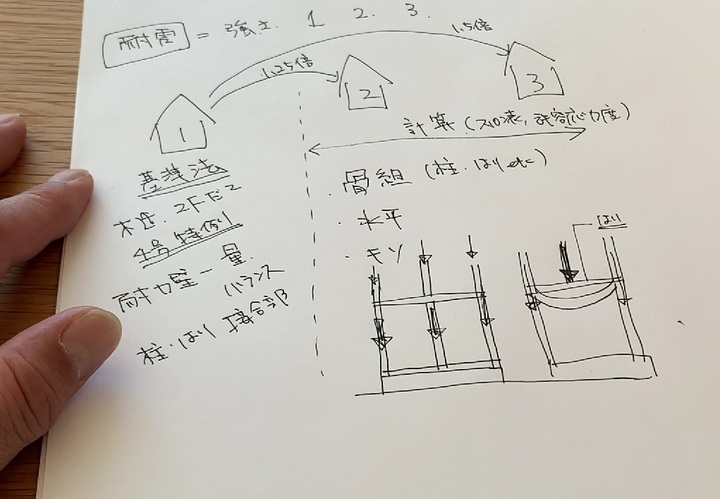 耐震 = 強さ 1 2. 3.
1.25倍
1.5倍
1
2
3
基準法
木造・2Fだ2
4号特例
耐力壁ー量.
バランス
柱・はり 接合部
計算(スパン表, 許容応力度)
・骨組(柱・はり etc)
・水平
・キソ
はり